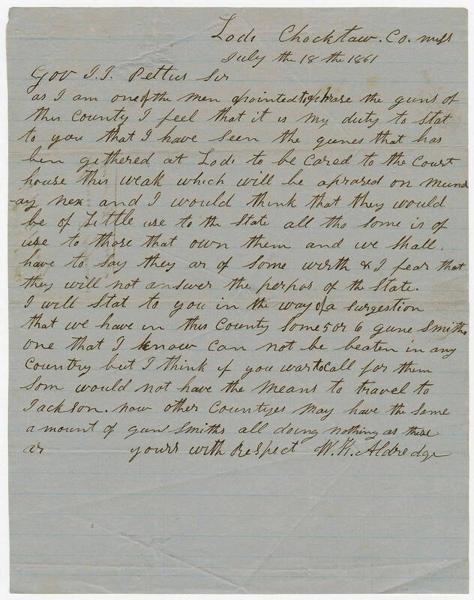 Lodi Chocktaw. Co. miss
July the 18 th 1861
Gov J. J. Pettus Sir
as I am one of the men apointed to the guns of
this County I feel that it is my duty to Stat
to you that I have Seen the gunes that has
bin gethered at Lodi to be Cared to the Court
house this weak which will be aprased on mund
-ay nex and I would think that they would
be of Little use to the State all tho some is of
use to those that own them and we Shall
have to Say they ar of Some wirth & I fear that
they will not answer the perpos of the State.
I will Stat to you in the way of a Surgestion
that we have in this County Some 5 or 6 gune Smiths
one that I know Can not be beaten in any
Country but I think if you wer to Call for them
Som would not have the Means to travel to
Jackson. now other Countyes may have the Same
amount of gun Smiths all doing nothing as these
ar yours with Respect W. H. Aldredge